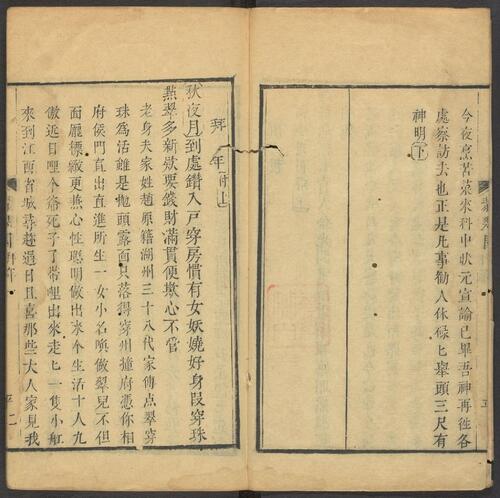 今夜烹苦菜來科中狀元宣諭已畢吾神再徃各
處察訪去也正是凡事勸人休碌匕舉頭三尺有
神明下
拜年 占上
秋夜月到處鑽入戸穿房慣有女妖嬈好身叚穿珠
燕翠多新欵要錢財滿貫便欺心不管
老身夫家姓趙原籍湖州三十八代家傳点翠穿
珠爲活雖是抛頭露面只落得穿州撞府憑你相
府侯門直出直進所生一女小名喚做翠兒不但
面龎標緻更燕心性聰明做出來个生活十人九
傲近日哩个爺死子了帶哩出來走匕一隻小舡
來到江西省城尋趂過日且喜那些大人家見我